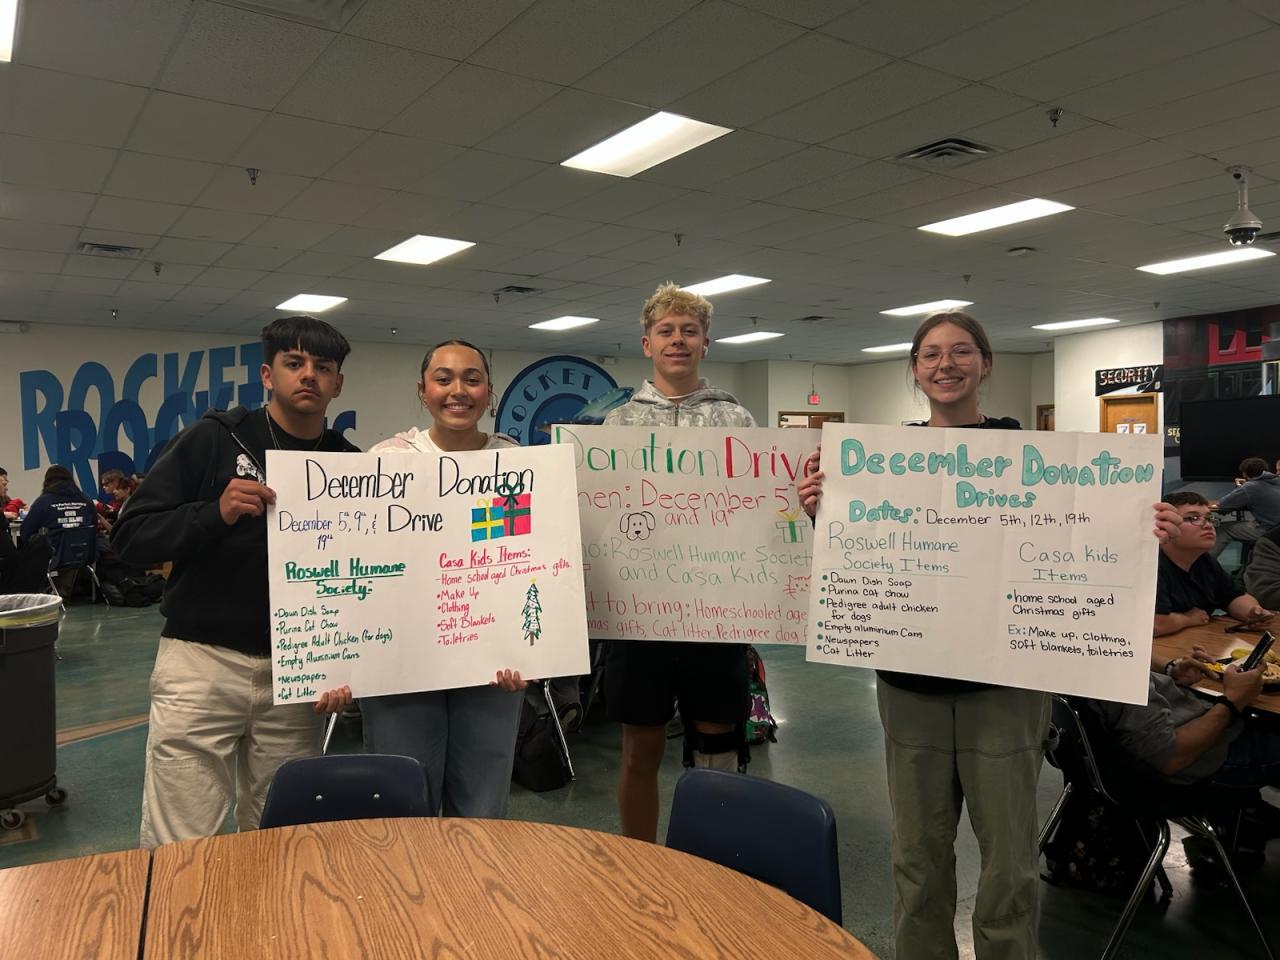 ROCKET
ROCKE
ROCKET
SECURITY
December Donation
Drive
December 5th, 9th, &
19th
Roswell Humane
Society:
•Dawn Dish Soap
•Purina Cat Chow
•Pedigree Adult Chicken (for dogs)
•Empty Aluminum Cans
•Newspapers
•Cat Litter
Casa Kids Items:
-Home school aged Christmas gifts.
•Make Up
•Clothing
•Soft Blankets
•Toiletries
Donation Drive
hen: December 5
and 19th
ho: Roswell Humane Societ
and Casa Kids
t to bring: Homeschooled age
mas gifts, Cat litter, Pedrigree dog f
December Donation
Drives
Dates: December 5th, 12th, 19th
Roswell Humane
Society Items
•Dawn Dish Soap
•Purina cat chow
•Pedigree adult chicken
for dogs
•Empty aluminium Cans
•Newspapers
•Cat Litter
Casa Kids
Items
•home school aged
Christmas gifts
Ex: Make up, clothing,
soft blankets, toiletries